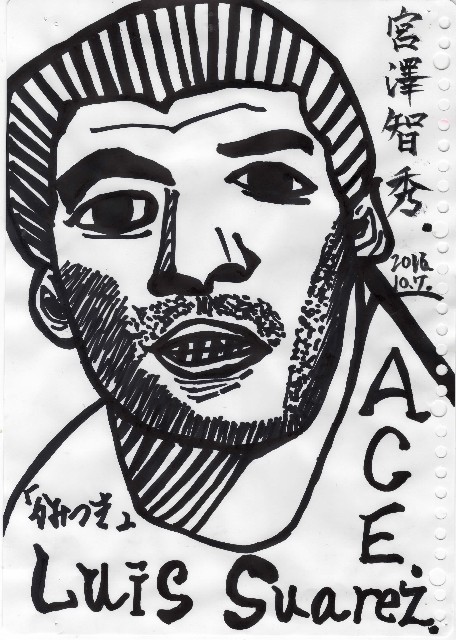 宮澤智秀.
2016.
10.7.
ACE.
「噛みつき」
Luis Suarez.